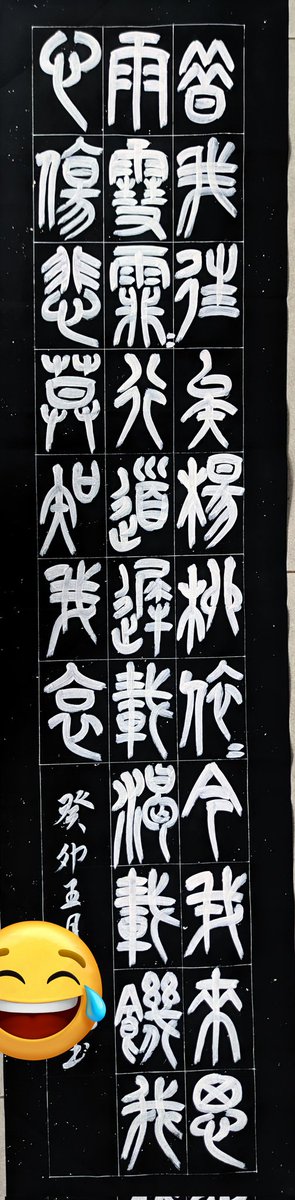 昔我往矣楊柳依=今我來思
雨雪霏=行道遲載渴載飢我
心傷悲莫知我哀
癸卯五月